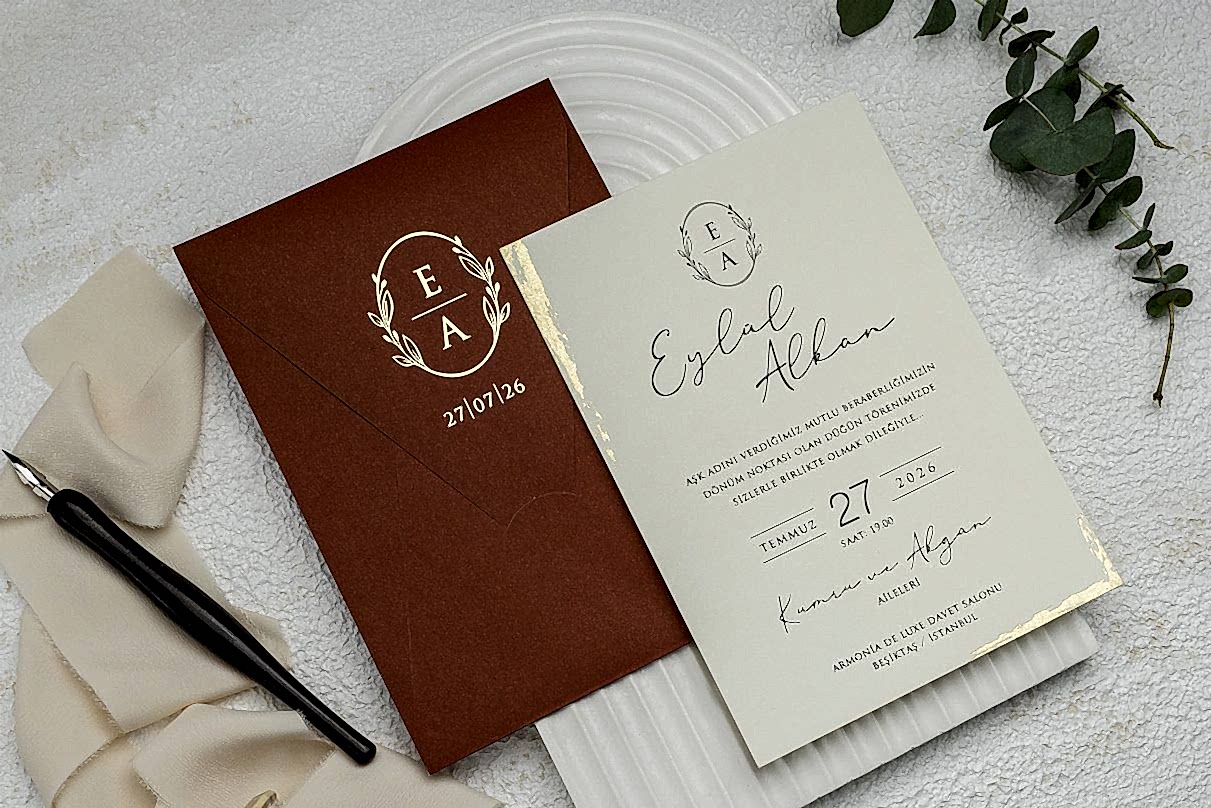 E
A
27|07|26
E
A
Eylül
Alkan
AŞK ADINI VERDİĞİMİZ MUTLU BERABERLİĞİMİZİN
DÖNÜM NOKTASI OLAN DÜĞÜN TÖRENİMİZDE
SİZLERLE BİRLİKTE OLMAK DİLEĞİYLE...
TEMMUZ 27 2026
SAAT: 19.00
Kumru ve Akgan
AİLELERİ
ARMONİA DE LUXE DAVET SALONU
BEŞİKTAŞ / İSTANBUL